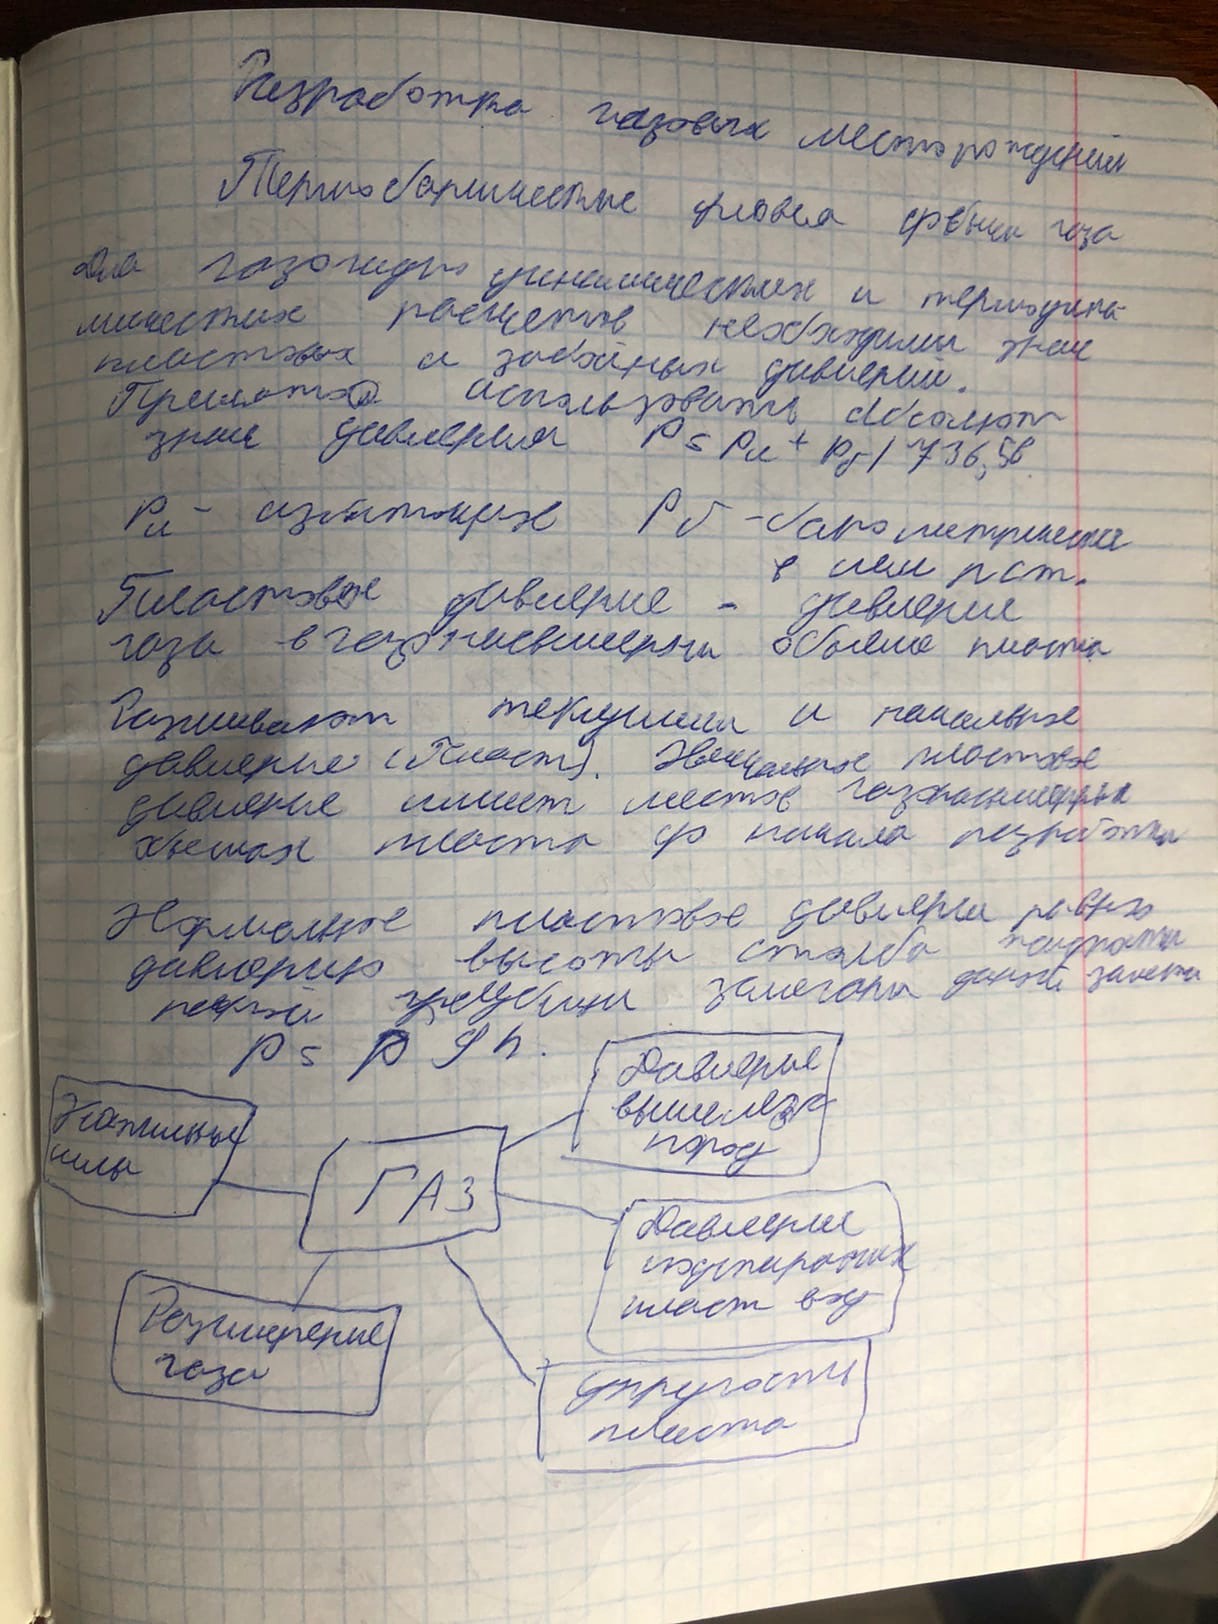 Разработка газовых месторождений
Термобарические условия добычи газа
Для газогидродинамических и термодина
мических расчетов необходимы знач
пластовых и забойных давлений.
Принято использовать абсолют
знач давления P = Pи + Pб / 736,56
Pи - избыточное Pб - барометрическое
в мм рт ст.
Пластовое давление - давление
газа в газонасыщенном объеме пласта
Различают текущее и начальное
давление (Пласт). Начальное пластовое
давление имеет место в газонасыщенных
объемах пласта до начала разработки
Нормальное пластовое давление равно
давлению высоты столба жидкости
глубины залегания данной залежи
P = ρ g h.
Давление
вышележ
пород
Напорные
силы
ГАЗ
Давление
подпирающих
пласт вод
Расширение
газа
Упругость
пласта